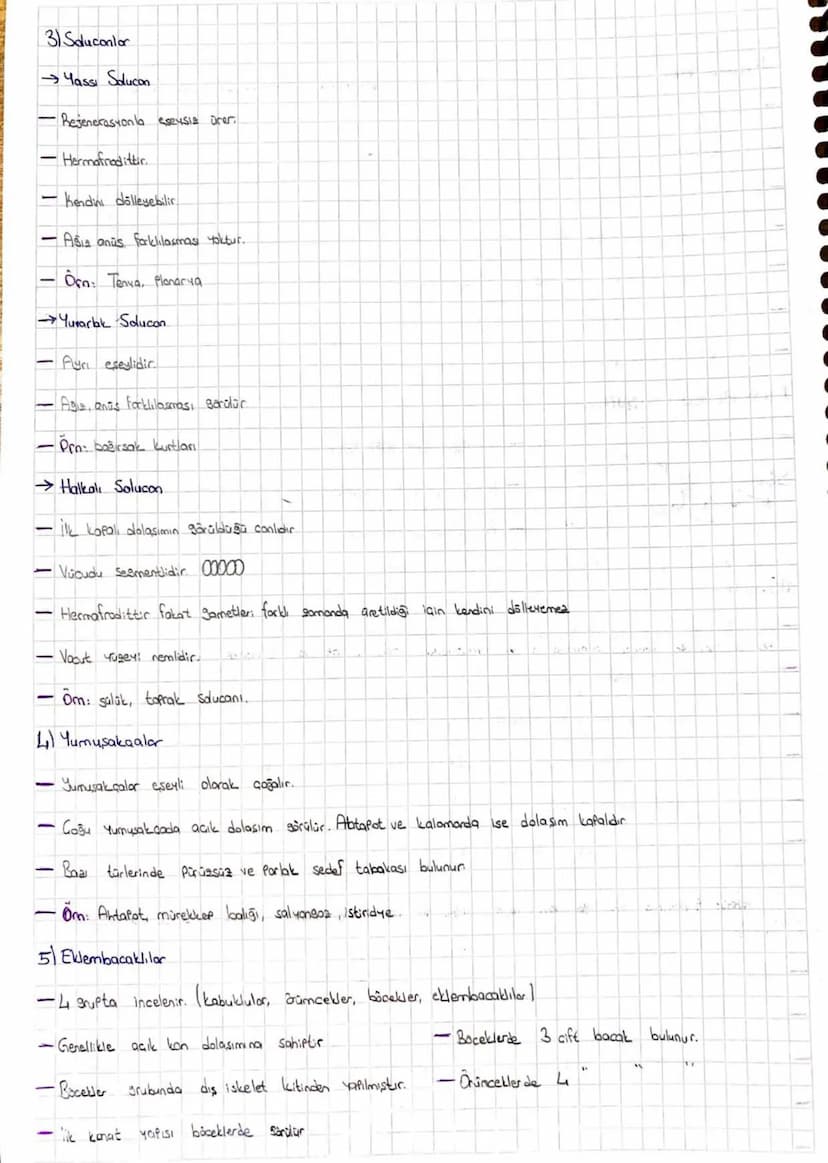 3) Solucanlar
→ Yassı Solucan
— Rejenerasyonla eşeysiz ürer.
— Hermafrodittir.
— Kendini dölleyebilir
— Ağız anüs farklılaşması yoktur.
— Örn: Tenya, Planarya
→ Yuvarlak Solucan
— Ayrı eşeylidir.
— Ağız, anüs farklılaşması görülür
— Örn: bağırsak kurtları
→ Halkalı Solucan
— İlk kapalı dolaşımın görüldüğü canlıdır
— Vücudu segmentlidir
— Hermafrodittir fakat gametleri farklı zamanda üretildiği için kendini dölleyemez
— Vücut yüzeyi nemlidir.
— Örn: sülük, toprak solucanı.
4) Yumuşakçalar
— Yumuşakçalar eşeyli olarak çoğalır.
— Çoğu yumuşakçada açık dolaşım görülür. Ahtapot ve kalamarda ise dolaşım kapalıdır
— Bazı türlerinde pürüzsüz ve parlak sedef tabakası bulunur
— Örn: Ahtapot, mürekkep balığı, salyangoz, istiridye.
5) Eklembacaklılar
— 4 grupta incelenir. (kabuklular, örümcekler, böcekler, eklembacaklılar)
— Genellikle açık kan dolaşımına sahiptir
— Böceklerde 3 çift bacak bulunur.
— Böcekler grubunda dış iskelet kitinden yapılmıştır.
— Örümceklerde 4 " " "
— İlk kanat yapısı böceklerde görülür